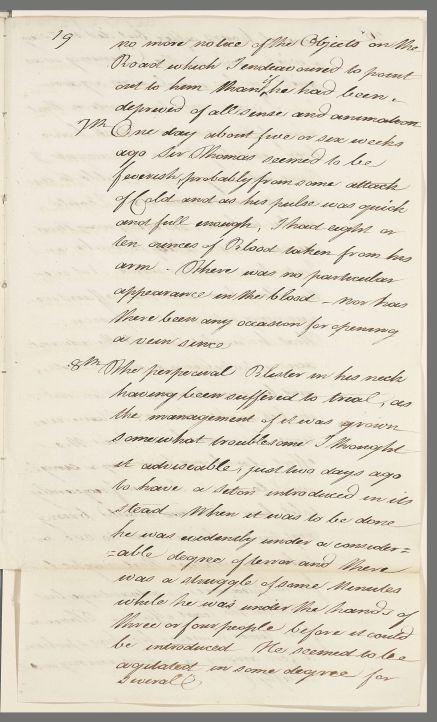 19
no more notice of the Objects on the
Road which I endeavoured to point
out to him than if he had been
deprived of all sense and animation
7th. One day about five or six weeks
ago Sir Thomas seemed to be
feverish, probably from some attack
of Cold and as his pulse was quick
and full enough, I had eight or
ten ounces of Blood taken from his
arm - There was no particular
appearance in the blood - nor has
there been any occasion for opening
a vein since
8th. The perpetual Blister in his neck
having been suffered to heal, as
the management of it was grown
somewhat troublesome I thought
it adviseable, just two days ago
to have a seton introduced in its
stead. When it was to be done
he was evidently under a consider=
=able degree of terror and there
was a struggle of some Minutes
while he was under the hands of
three or four people before it could
be introduced He seemed to be
agitated in some degree for
Several